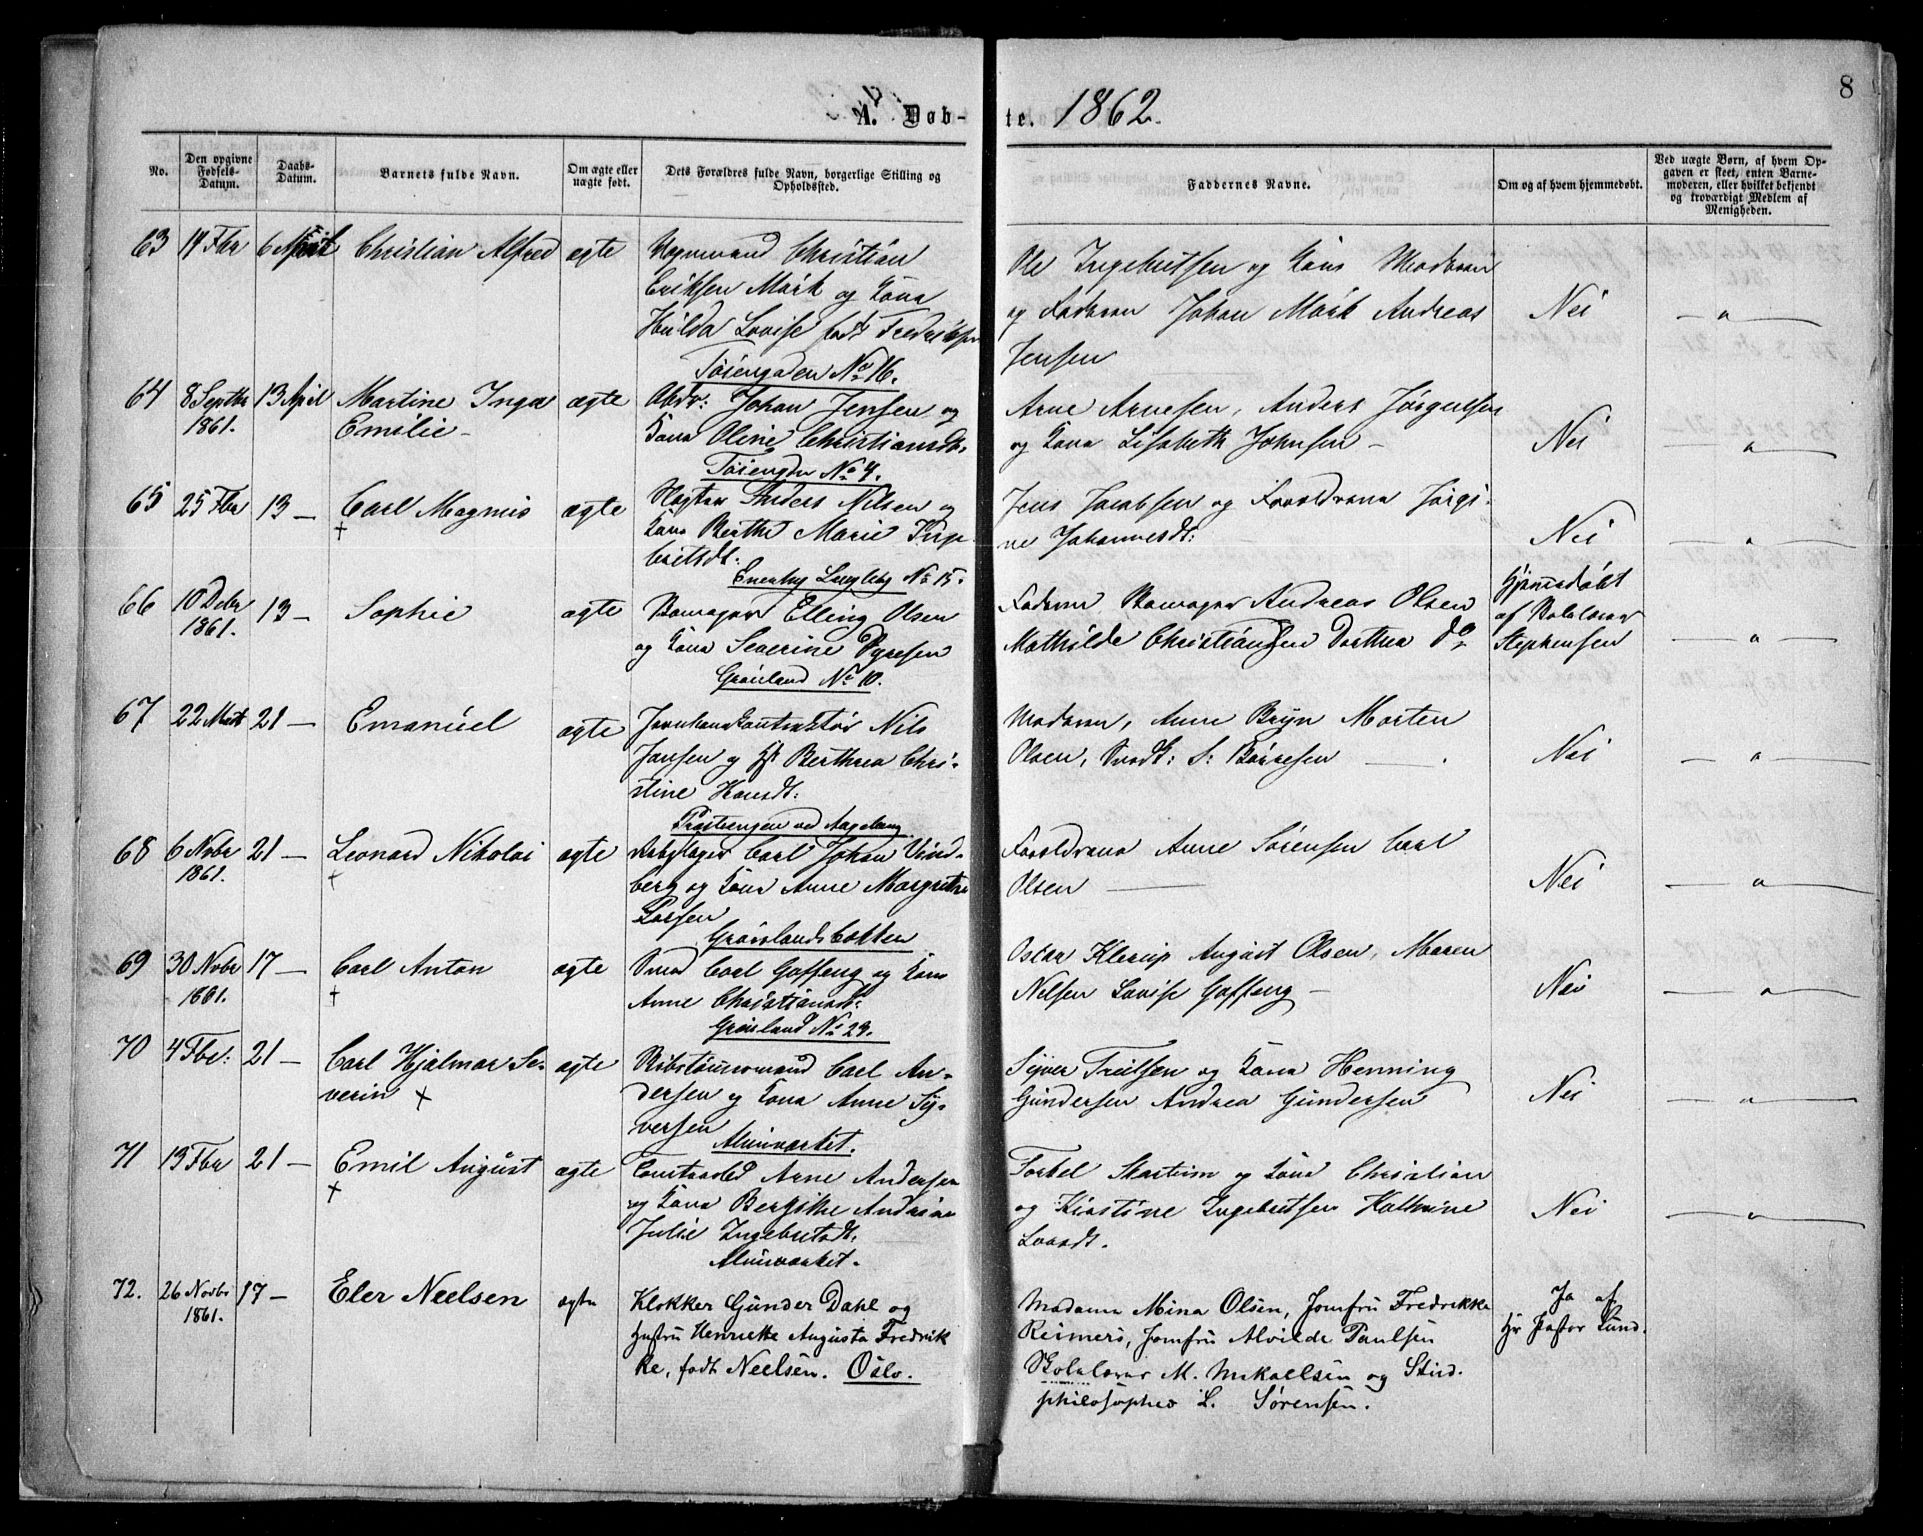 8
A. Døb-te. 1862.
No.
Den opgivne Fødsels-Datum.
Daabs-Datum.
Barnets fulde Navn.
Om ægte eller uægte født.
Dets Forældres fulde Navn, borgerlige Stilling og Opholdssted.
Faddernes Navne.
Om og af hvem hjemmedøbt.
Ved uægte Børn, af hvem Opgaven er skeet, enten Barnemoderen, eller hvilket bekjendt og troværdigt Medlem af Menigheden.
63 14 Fbr 6 April Christian Alfred ægte
Vognmand Christian
Eriksen Mørk og Kone
Hulda Lovise født Fredriksen
Tøiengaden No 16.
Ole Ingebretsen og Kone Madaren
og Faderen Johan Mørk Andreas
Jensen
Nei
64 8 Septbr 1861. 13 April Martine Inga
Emilie ægte
Arbdr: Johan Jensen og
Kone Oline Christiansdtr.
Tøiengdn No 4.
Arne Arnesen, Anders Jørgensen
og Kone Lisabeth Johnsen
Nei
65 25 Fbr 13 — Carl Magnus † ægte
Slagter Anders Nilsen og
Kone Berthe Marie Inge-
bretsdt:
Enerhg Langleg No 15.
Jens Jacobsen og Forældrene Jørgi-
ne Johannesdt:
Nei
66 10 Debr 1861. 13 — Sophie ægte
Skomager Elling Olsen
og Kone Severine Dyresen
Grønland No 10.
Faderen, Skomager Andreas Olsen
Mathilde Christiansen Dorthea do
Hjemmedøbt
af Skolelærer
Stephensen
67 22 Mart 21 — Emanuel ægte
Jernbanekontraktør Nils
Jansen og H Berthea Chri-
stine Hansdt:
Moderen, Anne Bryn Morten
Olsen, S: Børresen
Nei
68 6 Novbr 1861. 21 — Leonard Nikolai † ægte
Rebslager Carl Johan Lind-
berg og Kone Anne Margrethe
Larsen
Grønlandsbakken
Forældrene Anne Sørensen Carl
Olsen
Nei
69 30 Novbr 1861. 17 — Carl Anton † ægte
Smed Carl Goffeng og Kone
Anne Christiansdt:
Grønland No 29.
Oscar Klerup August Olsen, Maren
Nelsen Lovise Goffeng
Nei
70 4 Fbr: 21 — Carl Hjalmar Se-
verin † ægte
Ribstømmermand Carl An-
dersen og Kone Anne Sy-
versen
Alunværket.
Syver Trulsen og Kone Henning
Gundersen Andrea Gundersen
Nei
71 13 Fbr 21 — Emil August † ægte
Constabel Arne Andersen
og Kone Bergithe Andrine
Julie Ingebretsdt.
Alunværket.
Torkel Skarheim og Kone Christian
og Kirstine Ingebretsen Kathrine
Larsdt.
Nei
72. 26 Novbr 1861. 17 — Eler Neelsen ægte
Klokker Gunder Dahl og
Hustru Henriette Augusta Fredrik
ke, født Neelsen. Oslo.
Madame Mina Olsen, Jomfru Fredrikke
Reimers, Jomfru Alvilde Paulsen
Skolelærer M. Mikaelsen og Stud.
philosophes L. Sørensen.
Ja af
Hr Pastor Lund.